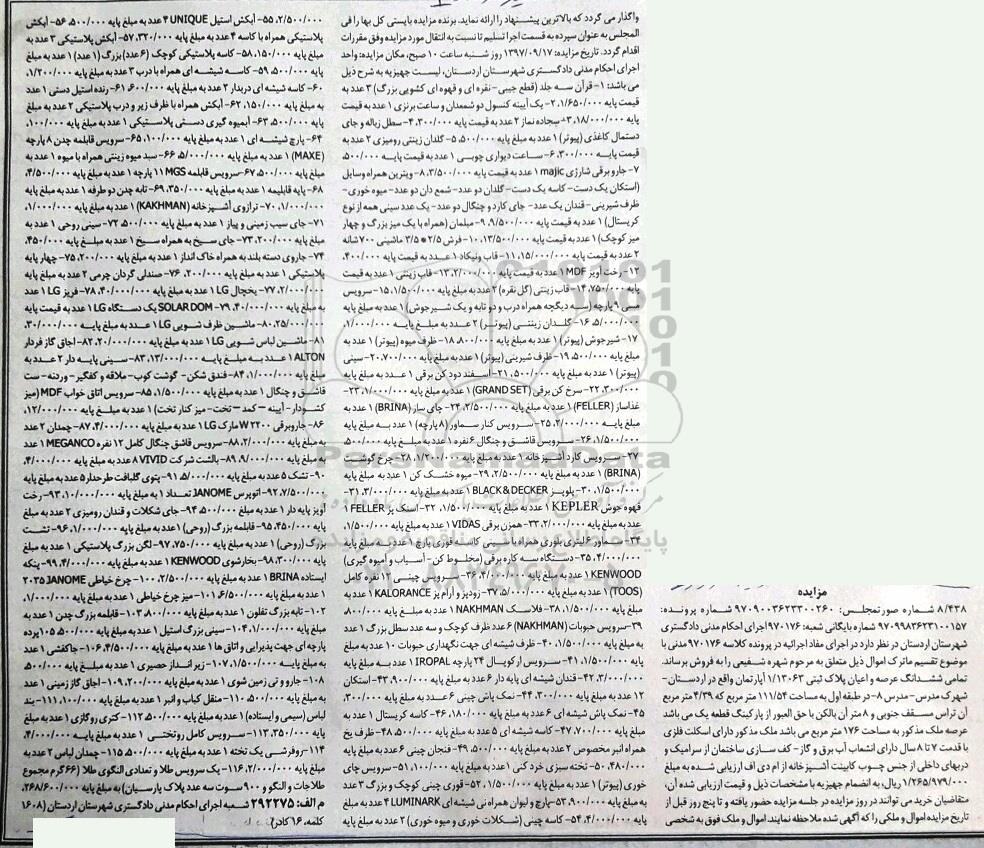 مزایده
۸/۴۳۸ شماره صورتمجلس: ۹۷۰۹۰۰۳۶۲۳۳۰۰۲۶۰ شماره پرونده:
۹۷۰۹۹۸۳۶۲۳۱۰۰۱۵۷ شماره بایگانی شعبه: ۹۷۰۱۷۶ اجرای احکام مدنی دادگستری
شهرستان اردستان در نظر دارد در اجرای مفاد اجرائیه در پرونده کلاسه ۹۷۰۱۷۶ مدنی با
موضوع تقسیم ماترک اموال ذیل متعلق به مرحوم شهره شفیعی را به فروش برساند.
تمامی ششدانگ عرصه و اعیان پلاک ثبتی ۱/۱۳۰۶۳ آپارتمان واقع در اردستان-
شهرک مدرس- مدرس ۸- در طبقه اول به مساحت ۱۱۱/۵۴ متر مربع که ۴/۳۹ متر مربع
آن تراس مسقف جنوبی و ۸ متر آن بالکن با حق العبور از پارکینگ قطعه یک می باشد
عرصه ملک مذکور به مساحت ۱۷۶ متر مربع می باشد ملک مذکور دارای اسکلت فلزی
با قدمت ۷ تا ۸ سال دارای انشعاب آب برق و گاز- کف سازی ساختمان از سرامیک و
دربهای داخلی از جنس چوب کابینت آشپزخانه از ام دی اف ارزیابی شده به مبلغ
۱/۲۶۵/۹۷۹/۰۰۰ ریال، به انضمام جهیزیه با مشخصات ذیل و قیمت ارزیابی شده آن،
متقاضیان خرید می توانند در روز مزایده در جلسه مزایده حضور یافته و تا پنج روز قبل از
تاریخ مزایده اموال و ملکی را که آگهی شده ملاحظه نمایند. اموال و ملک فوق به شخصی
واگذار می گردد که بالاترین پیشنهاد را ارائه نماید. برنده مزایده بایستی کل بها را فی
المجلس به عنوان سپرده به قسمت اجرا تسلیم تا نسبت به انتقال مورد مزایده وفق مقررات
اقدام گردد. تاریخ مزایده: ۱۳۹۷/۰۹/۱۷ روز شنبه ساعت ۱۰ صبح، مکان مزایده: واحد
اجرای احکام مدنی دادگستری شهرستان اردستان، لیست جهیزیه به شرح ذیل
می باشد: ۱- قرآن سه جلد (قطع جیبی- نقره ای و قهوه ای کشویی بزرگ) ۳ عدد به
قیمت پایه ۱/۶۵۰/۰۰۰، ۲- یک آیینه کنسول دو شمعدان و ساعت برنزی ۱ عدد به قیمت
پایه ۱۸/۰۰۰/۰۰۰، ۳- سجاده نماز ۲ عدد به قیمت پایه ۳۰۰/۰۰۰، ۴- سطل زباله و جای
دستمال کاغذی (پیوتر) ۱ عدد به مبلغ پایه ۵۰۰/۰۰۰، ۵- گلدان زینتی رومیزی ۲ عدد به
قیمت پایه ۳۰۰/۰۰۰، ۶- ساعت دیواری چوبی ۱ عدد به قیمت پایه ۵۰۰/۰۰۰،
۷- جاروبرقی شارژی majic ۱ عدد به قیمت پایه ۳/۵۰۰/۰۰۰، ۸- ویترین همراه وسایل
(استکان یک دست- کاسه یک دست- گلدان دو عدد- شمع دان دو عدد- میوه خوری-
ظرف شیرینی- قندان یک عدد- جای کارد و چنگال دو عدد- یک عدد سینی همه از نوع
کریستال) ۱ عدد به قیمت پایه ۹/۵۰۰/۰۰۰، ۹- مبلمان (همراه با یک میز بزرگ و چهار
میز کوچک) ۱ عدد به قیمت پایه ۱۳/۵۰۰/۰۰۰، ۱۰- فرش ۲/۵*۳/۵ ماشینی ۷۰۰ شانه
۲ عدد به قیمت پایه ۱۵/۰۰۰/۰۰۰، ۱۱- قاب ونیکاد ۱ عدد به قیمت پایه ۴۰۰/۰۰۰،
۱۲- رخت آویز MDF ۱ عدد به قیمت پایه ۲/۰۰۰/۰۰۰، ۱۳- قاب زینتی ۱ عدد به قیمت
پایه ۷۵۰/۰۰۰، ۱۴- قاب زینتی (گل نقره) ۲ عدد به مبلغ پایه ۱/۵۰۰/۰۰۰، ۱۵- سرویس
مسی ۹ پارچه (سه دیگچه همراه درب و دو تابه و یک شیرجوش) ۱ عدد به مبلغ پایه
۵/۰۰۰/۰۰۰، ۱۶- گلدان زینتی (پیوتر) ۲ عدد به مبلغ پایه ۱/۰۰۰/۰۰۰،
۱۷- شیرجوش (پیوتر) ۱ عدد به مبلغ پایه ۸۰۰/۰۰۰، ۱۸- ظرف میوه (پیوتر) ۱ عدد به
مبلغ پایه ۵۰۰/۰۰۰، ۱۹- ظرف شیرینی (پیوتر) ۱ عدد به مبلغ پایه ۷۰۰/۰۰۰، ۲۰- سینی
(پیوتر) ۱ عدد به مبلغ پایه ۵۰۰/۰۰۰، ۲۱- اسفند دود کن برقی ۱ عدد به مبلغ پایه
۳۰۰/۰۰۰، ۲۲- سرخ کن برقی (GRAND SET) ۱ عدد به مبلغ پایه ۱/۰۰۰/۰۰۰، ۲۳-
غذاساز (FELLER) ۱ عدد به مبلغ پایه ۲/۵۰۰/۰۰۰، ۲۴- چای ساز (BRINA) ۱ عدد به
مبلغ پایه ۲/۰۰۰/۰۰۰، ۲۵- سرویس کنار سماور (۸ پارچه) ۱ عدد به مبلغ پایه
۱/۵۰۰/۰۰۰، ۲۶- سرویس قاشق و چنگال ۶ نفره ۱ عدد به مبلغ پایه ۵۰۰/۰۰۰،
۲۷- سرویس کارد آشپزخانه ۱ عدد به مبلغ پایه ۱/۲۰۰/۰۰۰، ۲۸- چرخ گوشت
(BRINA) ۱ عدد به مبلغ پایه ۲/۵۰۰/۰۰۰، ۲۹- میوه خشک کن ۱ عدد به مبلغ پایه
۱/۵۰۰/۰۰۰، ۳۰- پلوپز BLACK & DECKER ۱ عدد به مبلغ پایه ۳/۰۰۰/۰۰۰، ۳۱-
قهوه جوش KEPLER ۱ عدد به مبلغ پایه ۱/۵۰۰/۰۰۰، ۳۲- اسنک پز FELLER ۱
عدد به مبلغ پایه ۲/۰۰۰/۰۰۰، ۳۳- همزن برقی VIDAS ۱ عدد به مبلغ پایه ۱/۵۰۰/۰۰۰،
۳۴- سماور ۶ لیتری بلوری همراه با سینی کاسه قوری پارچ ۱ عدد به مبلغ پایه
۴/۰۰۰/۰۰۰، ۳۵- دستگاه سه کاره برقی (مخلوط کن- آسیاب و آبمیوه گیری)
KENWOOD ۱ عدد به مبلغ پایه ۴/۰۰۰/۰۰۰، ۳۶- سرویس چینی ۱۲ نفره کامل
(TOOS) ۱ عدد به مبلغ پایه ۵/۰۰۰/۰۰۰، ۳۷- زودپز و آرام پز KALORANCE ۱ عدد به
مبلغ پایه ۱/۵۰۰/۰۰۰، ۳۸- فلاسک NAKHMAN ۱ عدد به مبلغ پایه ۸۰۰/۰۰۰،
۳۹- سرویس حبوبات (NAKHMAN) ۶ عدد ظرف کوچک و سه عدد سطل بزرگ ۱ عدد
به مبلغ پایه ۱/۵۰۰/۰۰۰، ۴۰- ظرف شیشه ای جهت نگهداری حبوبات ۱۰ عدد به مبلغ
پایه ۱/۵۰۰/۰۰۰، ۴۱- سرویس آرکوپال ۲۴ پارچه IROPAL ۱ عدد به مبلغ پایه
۳/۰۰۰/۰۰۰، ۴۲- قندان شیشه ای پایه دار ۶ عدد به مبلغ پایه ۹۰۰/۰۰۰، ۴۳- استکان
۱۲ عدد به مبلغ پایه ۳۰۰/۰۰۰، ۴۴- نمک پاش چینی ۶ عدد به مبلغ پایه ۳۰۰/۰۰۰،
۴۵- نمک پاش شیشه ای ۶ عدد به مبلغ پایه ۱۸۰/۰۰۰، ۴۶- کاسه کریستال ۱ عدد به
مبلغ پایه ۷۰۰/۰۰۰، ۴۷- کاسه شیشه ای ۵ عدد به مبلغ پایه ۵۰۰/۰۰۰، ۴۸- ظرف یخ
همراه انبر مخصوص ۲ عدد به مبلغ پایه ۵۰۰/۰۰۰، ۴۹- فنجان چینی ۶ عدد به مبلغ پایه
۴۸۰/۰۰۰، ۵۰- تخته سبزی خرد کنی ۱ عدد به مبلغ پایه ۱۰۰/۰۰۰، ۵۱- سرویس چای
خوری (پیوتر) ۱ عدد به مبلغ پایه ۱/۵۰۰/۰۰۰، ۵۲- قوری چینی کوچک و بزرگ ۳ عدد
به مبلغ پایه ۹۰۰/۰۰۰، ۵۳- پارچ و لیوان همراه نی شیشه ای LUMINARK ۴ عدد به مبلغ
پایه ۴/۰۰۰/۰۰۰، ۵۴- کاسه چینی (شکلات خوری و میوه خوری) ۲ عدد به مبلغ پایه
۲/۵۰۰/۰۰۰، ۵۵- آبکش استیل UNIQUE ۴ عدد به مبلغ پایه ۵۰۰/۰۰۰، ۵۶- آبکش
پلاستیکی همراه با کاسه ۴ عدد به مبلغ پایه ۳۲۰/۰۰۰، ۵۷- آبکش پلاستیکی ۳ عدد به
مبلغ پایه ۱۵۰/۰۰۰، ۵۸- کاسه پلاستیکی کوچک (۶ عدد) بزرگ (۱ عدد) ۱ عدد به مبلغ
پایه ۵۰۰/۰۰۰، ۵۹- کاسه شیشه ای همراه با درب ۳ عدد به مبلغ پایه ۱/۲۰۰/۰۰۰،
۶۰- کاسه شیشه ای دربدار ۲ عدد به مبلغ پایه ۶۰۰/۰۰۰، ۶۱- رنده استیل دستی ۱ عدد
به مبلغ پایه ۱۵۰/۰۰۰، ۶۲- آبکش همراه با ظرف زیر و درب پلاستیکی ۲ عدد به مبلغ
پایه ۵۰۰/۰۰۰، ۶۳- آبمیوه گیری دستی پلاستیکی ۱ عدد به مبلغ پایه ۱۰۰/۰۰۰،
۶۴- پارچ شیشه ای ۱ عدد به مبلغ پایه ۱۰۰/۰۰۰، ۶۵- سرویس قابلمه چدن ۸ پارچه
(MAXE) ۱ عدد به مبلغ پایه ۵/۰۰۰/۰۰۰، ۶۶- سبد میوه زینتی همراه با میوه ۱ عدد به
مبلغ پایه ۵۰۰/۰۰۰، ۶۷- سرویس قابلمه MGS ۱۱ پارچه ۱ عدد به مبلغ پایه ۴/۵۰۰/۰۰۰،
۶۸- پایه قابلیمه ۱ عدد به مبلغ پایه ۳۵۰/۰۰۰، ۶۹- تابه چدن دو طرفه ۱ عدد به مبلغ پایه
۱/۰۰۰/۰۰۰، ۷۰- ترازوی آشپزخانه (KAKHMAN) ۱ عدد به مبلغ پایه ۱/۰۰۰/۰۰۰،
۷۱- جای سیب زمینی و پیاز ۱ عدد به مبلغ پایه ۵۰۰/۰۰۰، ۷۲- سینی روحی ۱ عدد به
مبلغ پایه ۲۰۰/۰۰۰، ۷۳- جای سیخ به همراه سیخ ۱ عدد به مبلغ پایه ۴۵۰/۰۰۰،
۷۴- جاروی دسته بلند به همراه خاک انداز ۱ عدد به مبلغ پایه ۲۰۰/۰۰۰، ۷۵- چهار پایه
پلاستیکی ۱ عدد به مبلغ پایه ۲۰۰/۰۰۰، ۷۶- صندلی گردان چرمی ۲ عدد به مبلغ پایه
۲/۰۰۰/۰۰۰، ۷۷- یخچال LG ۱ عدد به مبلغ پایه ۴۰/۰۰۰/۰۰۰، ۷۸- فریزر LG ۱ عدد
به مبلغ پایه ۴۰/۰۰۰/۰۰۰، ۷۹- SOLAR DOM یک دستگاه LG ۱ عدد به قیمت پایه
۲۵/۰۰۰/۰۰۰، ۸۰- ماشین ظرف شویی LG ۱ عدد به مبلغ پایه ۳۰/۰۰۰/۰۰۰،
۸۱- ماشین لباس شویی LG ۱ عدد به مبلغ پایه ۲۰/۰۰۰/۰۰۰، ۸۲- اجاق گاز فردار
ALTON ۱ عدد به مبلغ پایه ۱۳/۰۰۰/۰۰۰، ۸۳- سینی پایه دار ۲ عدد به
مبلغ پایه ۱/۰۰۰/۰۰۰، ۸۴- قندق شکن- گوشت کوب- ملاقه و کفگیر- وردنه- ست
قاشق و چنگال ۱ عدد به مبلغ پایه ۱/۵۰۰/۰۰۰، ۸۵- سرویس اتاق خواب MDF (میز
کشودار- آیینه- کمد- تخت- میز کنار تخت) ۱ عدد به مبلغ پایه ۱۲/۰۰۰/۰۰۰،
۸۶- جاروبرقی ۲۲۰۰ W مارک LG ۱ عدد به مبلغ پایه ۴/۰۰۰/۰۰۰، ۸۷- چمدان ۲ عدد
به مبلغ پایه ۲/۰۰۰/۰۰۰، ۸۸- سرویس قاشق چنگال کامل ۱۲ نفره MEGANCO ۱ عدد
به مبلغ پایه ۹/۰۰۰/۰۰۰، ۸۹- بالشت شرکت VIVID ۸ عدد به مبلغ پایه ۴/۰۰۰/۰۰۰،
۹۰- تشک ۵ عدد به مبلغ پایه ۵/۰۰۰/۰۰۰، ۹۱- پتوی گلبافت طرحدار ۵ عدد به مبلغ پایه
۷/۵۰۰/۰۰۰، ۹۲- اتوپرس JANOME تعداد ۱ به مبلغ پایه ۱۰/۰۰۰/۰۰۰، ۹۳- رخت
آویز پایه دار ۱ عدد به مبلغ پایه ۵۰۰/۰۰۰، ۹۴- جای شکلات و قندان رومیزی ۲ عدد به مبلغ
پایه ۴۵۰/۰۰۰، ۹۵- قابلمه بزرگ (روحی) ۱ عدد به مبلغ پایه ۱/۰۰۰/۰۰۰، ۹۶- تشت
بزرگ (روحی) ۱ عدد به مبلغ پایه ۷۵۰/۰۰۰، ۹۷- لگن بزرگ پلاستیکی ۱ عدد به مبلغ
پایه ۳۰۰/۰۰۰، ۹۸- بخارشوی KENWOOD ۱ عدد به مبلغ پایه ۴/۰۰۰/۰۰۰، ۹۹- پنکه
ایستاده BRINA ۱ عدد به مبلغ پایه ۲/۵۰۰/۰۰۰، ۱۰۰- چرخ خیاطی JANOME ۲۰۳۵
۱ عدد به مبلغ پایه ۶/۵۰۰/۰۰۰، ۱۰۱- میز چرخ خیاطی ۱ عدد به مبلغ پایه ۱/۰۰۰/۰۰۰،
۱۰۲- تابه بزرگ تفلون ۱ عدد به مبلغ پایه ۸۰۰/۰۰۰، ۱۰۳- قابلمه بزرگ چدن ۱ عدد به
مبلغ پایه ۱/۰۰۰/۰۰۰، ۱۰۴- سینی بزرگ استیل ۱ عدد به مبلغ پایه ۵۰۰/۰۰۰، ۱۰۵ پرده
پارچه ای جهت پذیرایی و اتاق ها ۱ عدد به مبلغ پایه ۴/۵۰۰/۰۰۰، ۱۰۶- جاکفشی ۱ عدد
به مبلغ پایه ۱/۵۰۰/۰۰۰، ۱۰۷- زیر انداز حصیری ۱ عدد به مبلغ پایه ۵۰۰/۰۰۰،
۱۰۸- جارو و تی زمین شوی ۱ عدد به مبلغ پایه ۲۰۰/۰۰۰، ۱۰۹- اجاق گاز زمینی ۱ عدد
به مبلغ پایه ۵۰۰/۰۰۰، ۱۱۰- منقل کباب و انبر ۱ عدد به مبلغ پایه ۱۰۰/۰۰۰، ۱۱۱- بند
لباس (سیمی و ایستاده) ۱ عدد به مبلغ پایه ۵۰۰/۰۰۰، ۱۱۲- کتری روگازی ۱ عدد به مبلغ
پایه ۳۵۰/۰۰۰، ۱۱۳- سرویس کامل روتختی ۱ عدد به مبلغ پایه ۴/۰۰۰/۰۰۰،
۱۱۴- روفرشی یک تخته ۱ عدد به مبلغ پایه ۵۰۰/۰۰۰، ۱۱۵- چمدان لباس ۲ عدد به
مبلغ پایه ۲/۰۰۰/۰۰۰، ۱۱۶- یک سرویس طلا و تعدادی النگوی طلا (۶۶ گرم مجموع
طلاجات و النگو و ۹۰۰ سوت سه عدد پلاک پارسیان) به مبلغ پایه ۲۶۸/۶۰۰/۰۰۰،
م الف: ۲۹۲۲۷۵ شعبه اجرای احکام مدنی دادگستری شهرستان اردستان (۱۶۰۸
کلمه، ۱۶ کادر)